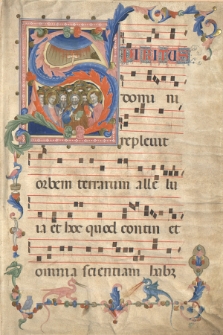 SPIRITUS
domi ni
repleuit
orbem terrarum alle lu
ia et hoc quod contin et
omnia scientiam habz